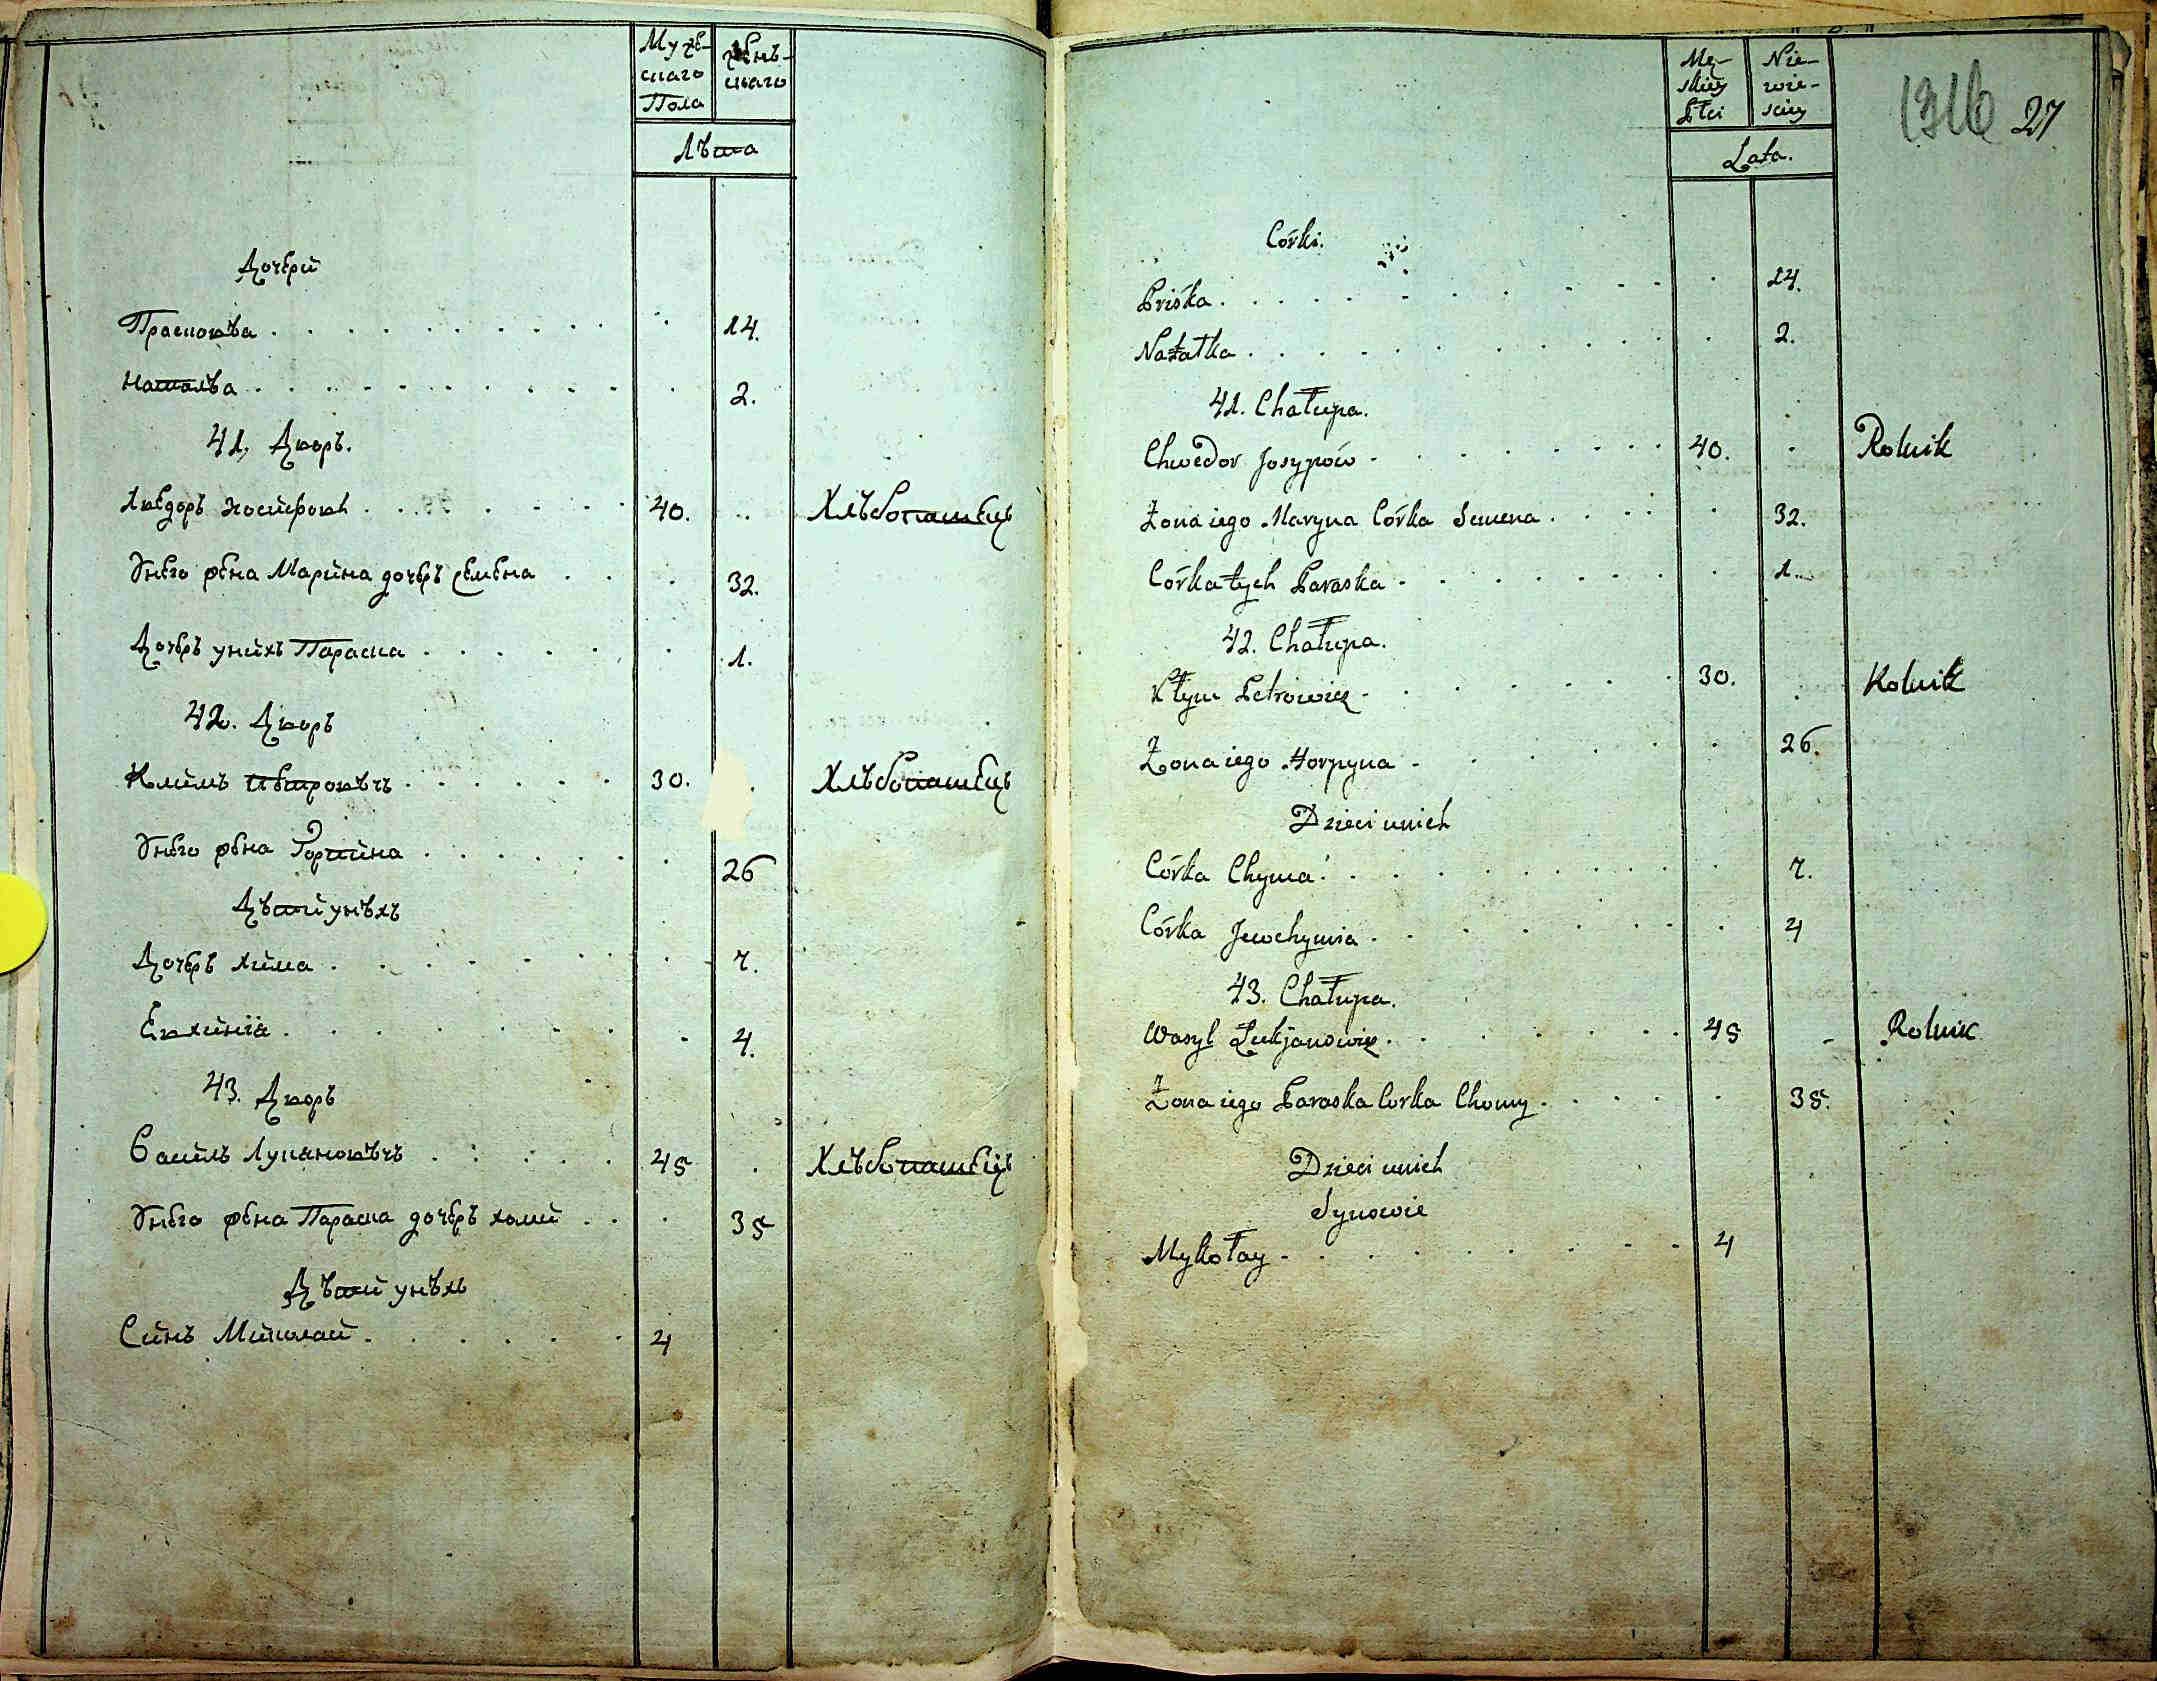 Мужескаго Пола
Женскаго
Лѣта
Дочери
Прасковѣа 14.
Наталѣа 2.
41. Дворъ.
Хведоръ Иосифовъ 40. Хлѣбопашецъ
Унего жена Марина дочерь Семена 32.
Дочерь унихъ Параска 1.
42. Дворъ
Климъ Петровѣчъ 30. Хлѣбопашецъ
Унего жена Горпина 26
Дѣти унѣхъ
Дочерь Хима 7.
Евхимія 4.
43. Дворъ
Василь Лукановѣчъ 45 Хлѣбопашецъ
Унего жена Параска дочерь хоми 35
Дѣти унѣхъ
Синъ Миколай 4
Męskiey Płci
Niewieściey
Lata.
1316 27
Córki.
Priśka 14.
Natałka 2.
41. Chałupa.
Chwedor Josypów 40. Rolnik
Żona iego Maryna Córka Semena 32.
Córka tych Paraska 1.
42. Chałupa.
Kłym Petrowicz 30. Rolnik
Żona iego Horpyna 26.
Dzieci unich
Córka Chyma 7.
Córka Jewchymia 4
43. Chałupa.
Wasyl Łukjanowicz 45 Rolnik
Żona iego Paraska Corka Chomy 35.
Dzieci unich
Synowie
Mykołay 4